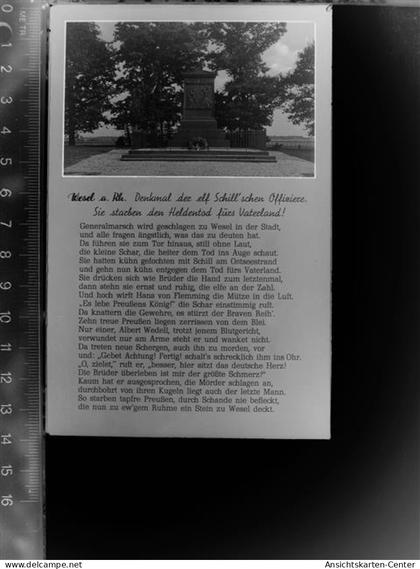 Wesel a. Rh. Denkmal der elf Schill'schen Offiziere.
Sie starben den Heldentod fürs Vaterland!
Generalmarsch wird geschlagen zu Wesel in der Stadt,
und alle fragen ängstlich, was das zu deuten hat.
Da führen sie zum Tor hinaus, still ohne Laut,
die kleine Schar, die heiter dem Tod ins Auge schaut.
Sie hatten kühn gefochten mit Schill am Ostseestrand
und gehn nun kühn entgegen dem Tod fürs Vaterland.
Sie drücken sich wie Brüder die Hand zum letztenmal,
dann stehn sie ernst und ruhig, die elfe an der Zahl.
Und hoch wirft Hans von Flemming die Mütze in die Luft.
„Es lebe Preußens König!" die Schar einstimmig ruft.
Da knattern die Gewehre, es stürzt der Braven Reih'.
Zehn treue Preußen liegen zerrissen von dem Blei.
Nur einer, Albert Wedell, trotzt jenem Blutgericht,
verwundet nur am Arme steht er und wanket nicht.
Da treten neue Schergen, auch ihn zu morden, vor
und: „Gebet Achtung! Fertig! schalt's schrecklich ihm ins Ohr.
„O, zielet," ruft er, „besser, hier sitzt das deutsche Herz!
Die Brüder überleben ist mir der größte Schmerz!"
Kaum hat er ausgesprochen, die Mörder schlagen an,
durchbohrt von ihren Kugeln liegt auch der letzte Mann.
So starben tapfre Preußen, durch Schande nie befleckt,
die nun zu ew'gem Ruhme ein Stein zu Wesel deckt.
0 1 2 3 4 5 6 7 8 9 10 11 12 13 14 15 16
Ansichtskarten-Center